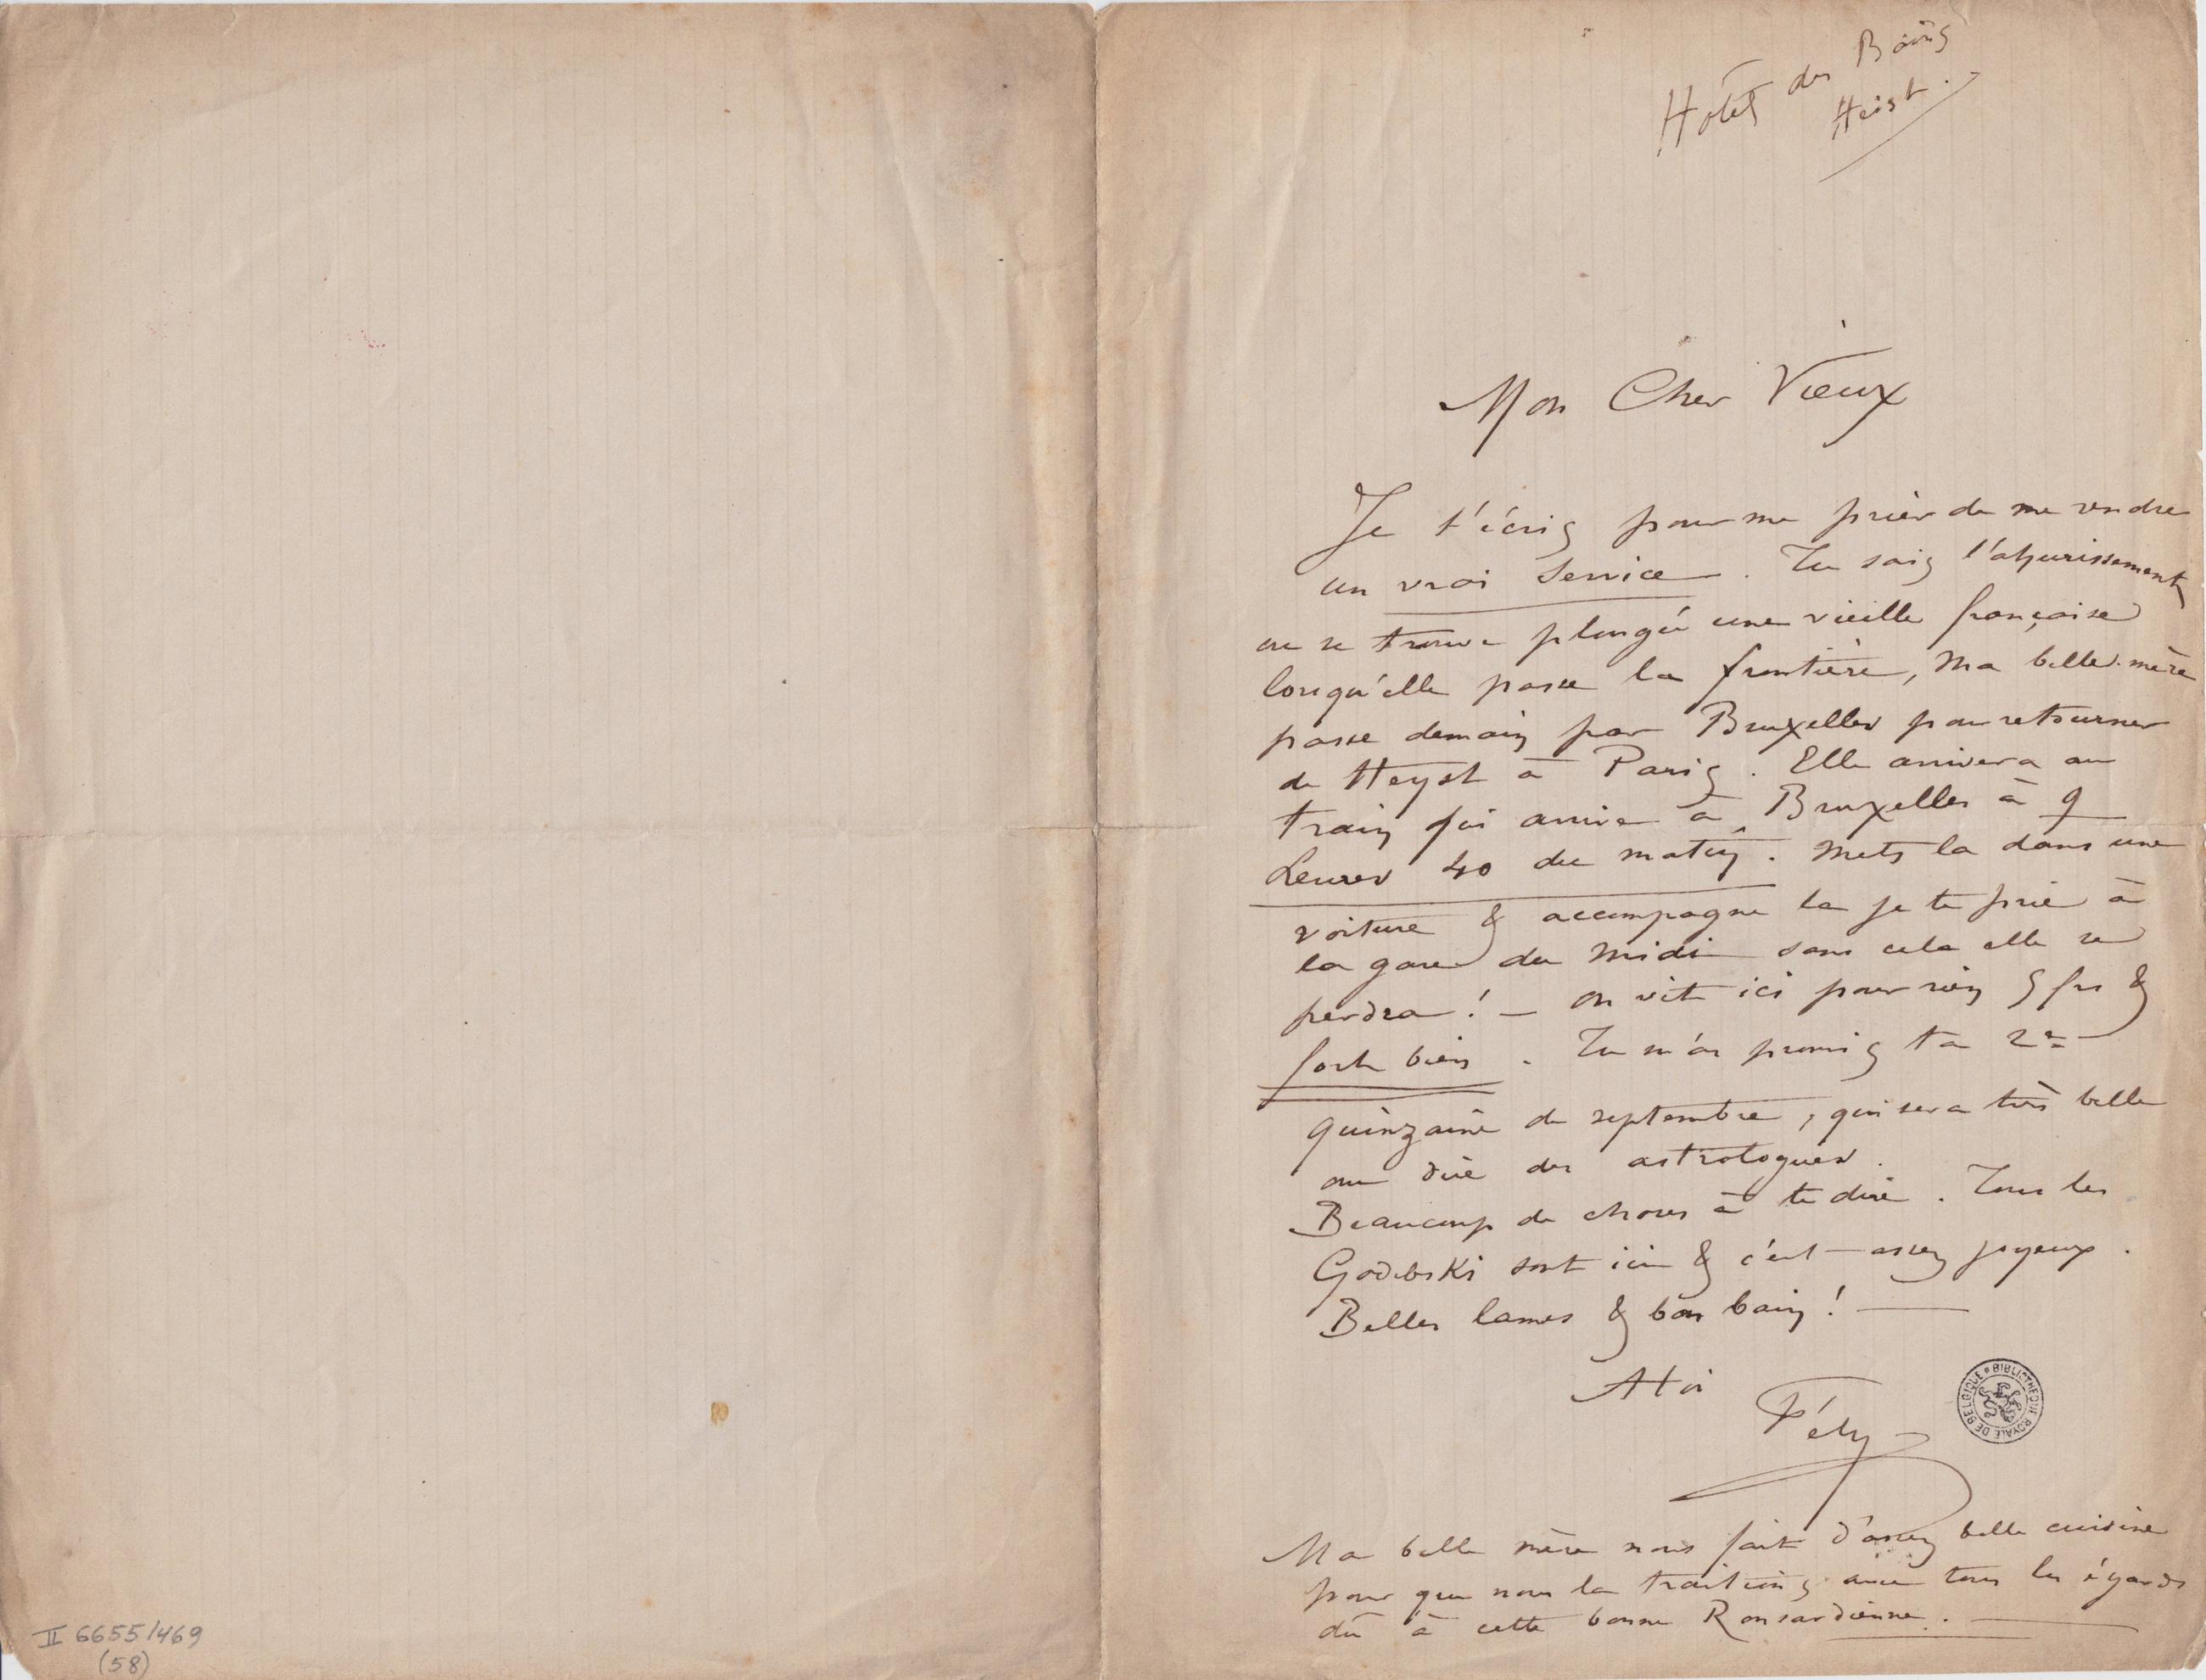 Hôtel des Bains
Heist.
Mon Cher Vieux
Je t'écris pour me prier de me rendre
un vrai service. Tu sais l'ahurissement
où se trouve plongée une vieille française
lorsqu'elle passe la frontière, Ma belle-mère
passe demain par Bruxelles pour retourner
de Heyst à Paris. Elle arrivera au
train qui arrive à Bruxelles à 9
heures 40 du matin. Mets la dans une
voiture & accompagne la je te prie à
la gare du Midi sans cela elle se
perdra! — On vit ici pour rien 5 frs &
fort bien. Tu m'as promis ta 2e
quinzaine de septembre, qui sera très belle
au dire des astrologues.
Beaucoup de choses à te dire. Tous les
Godebski sont ici & c'est assez joyeux.
Belles lames & bon bain! —
A toi
Fély
Ma belle mère nous fait d'assez belle cuisine
pour que nous la traitions avec tous les égards
dû à cette bonne Ronsardienne. —
BIBLIOTHÈQUE ROYALE DE BELGIQUE
II 6655/469
(58)